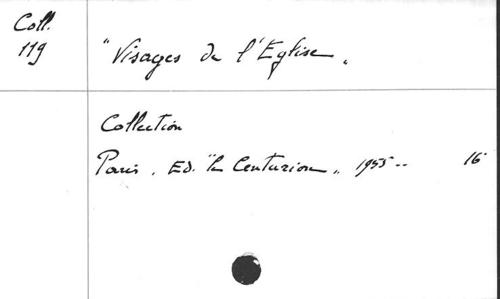 Coll.
119
"Visages de l'Eglise"
Collection
Paris, Ed. "Le Centurion", 1955-- 16